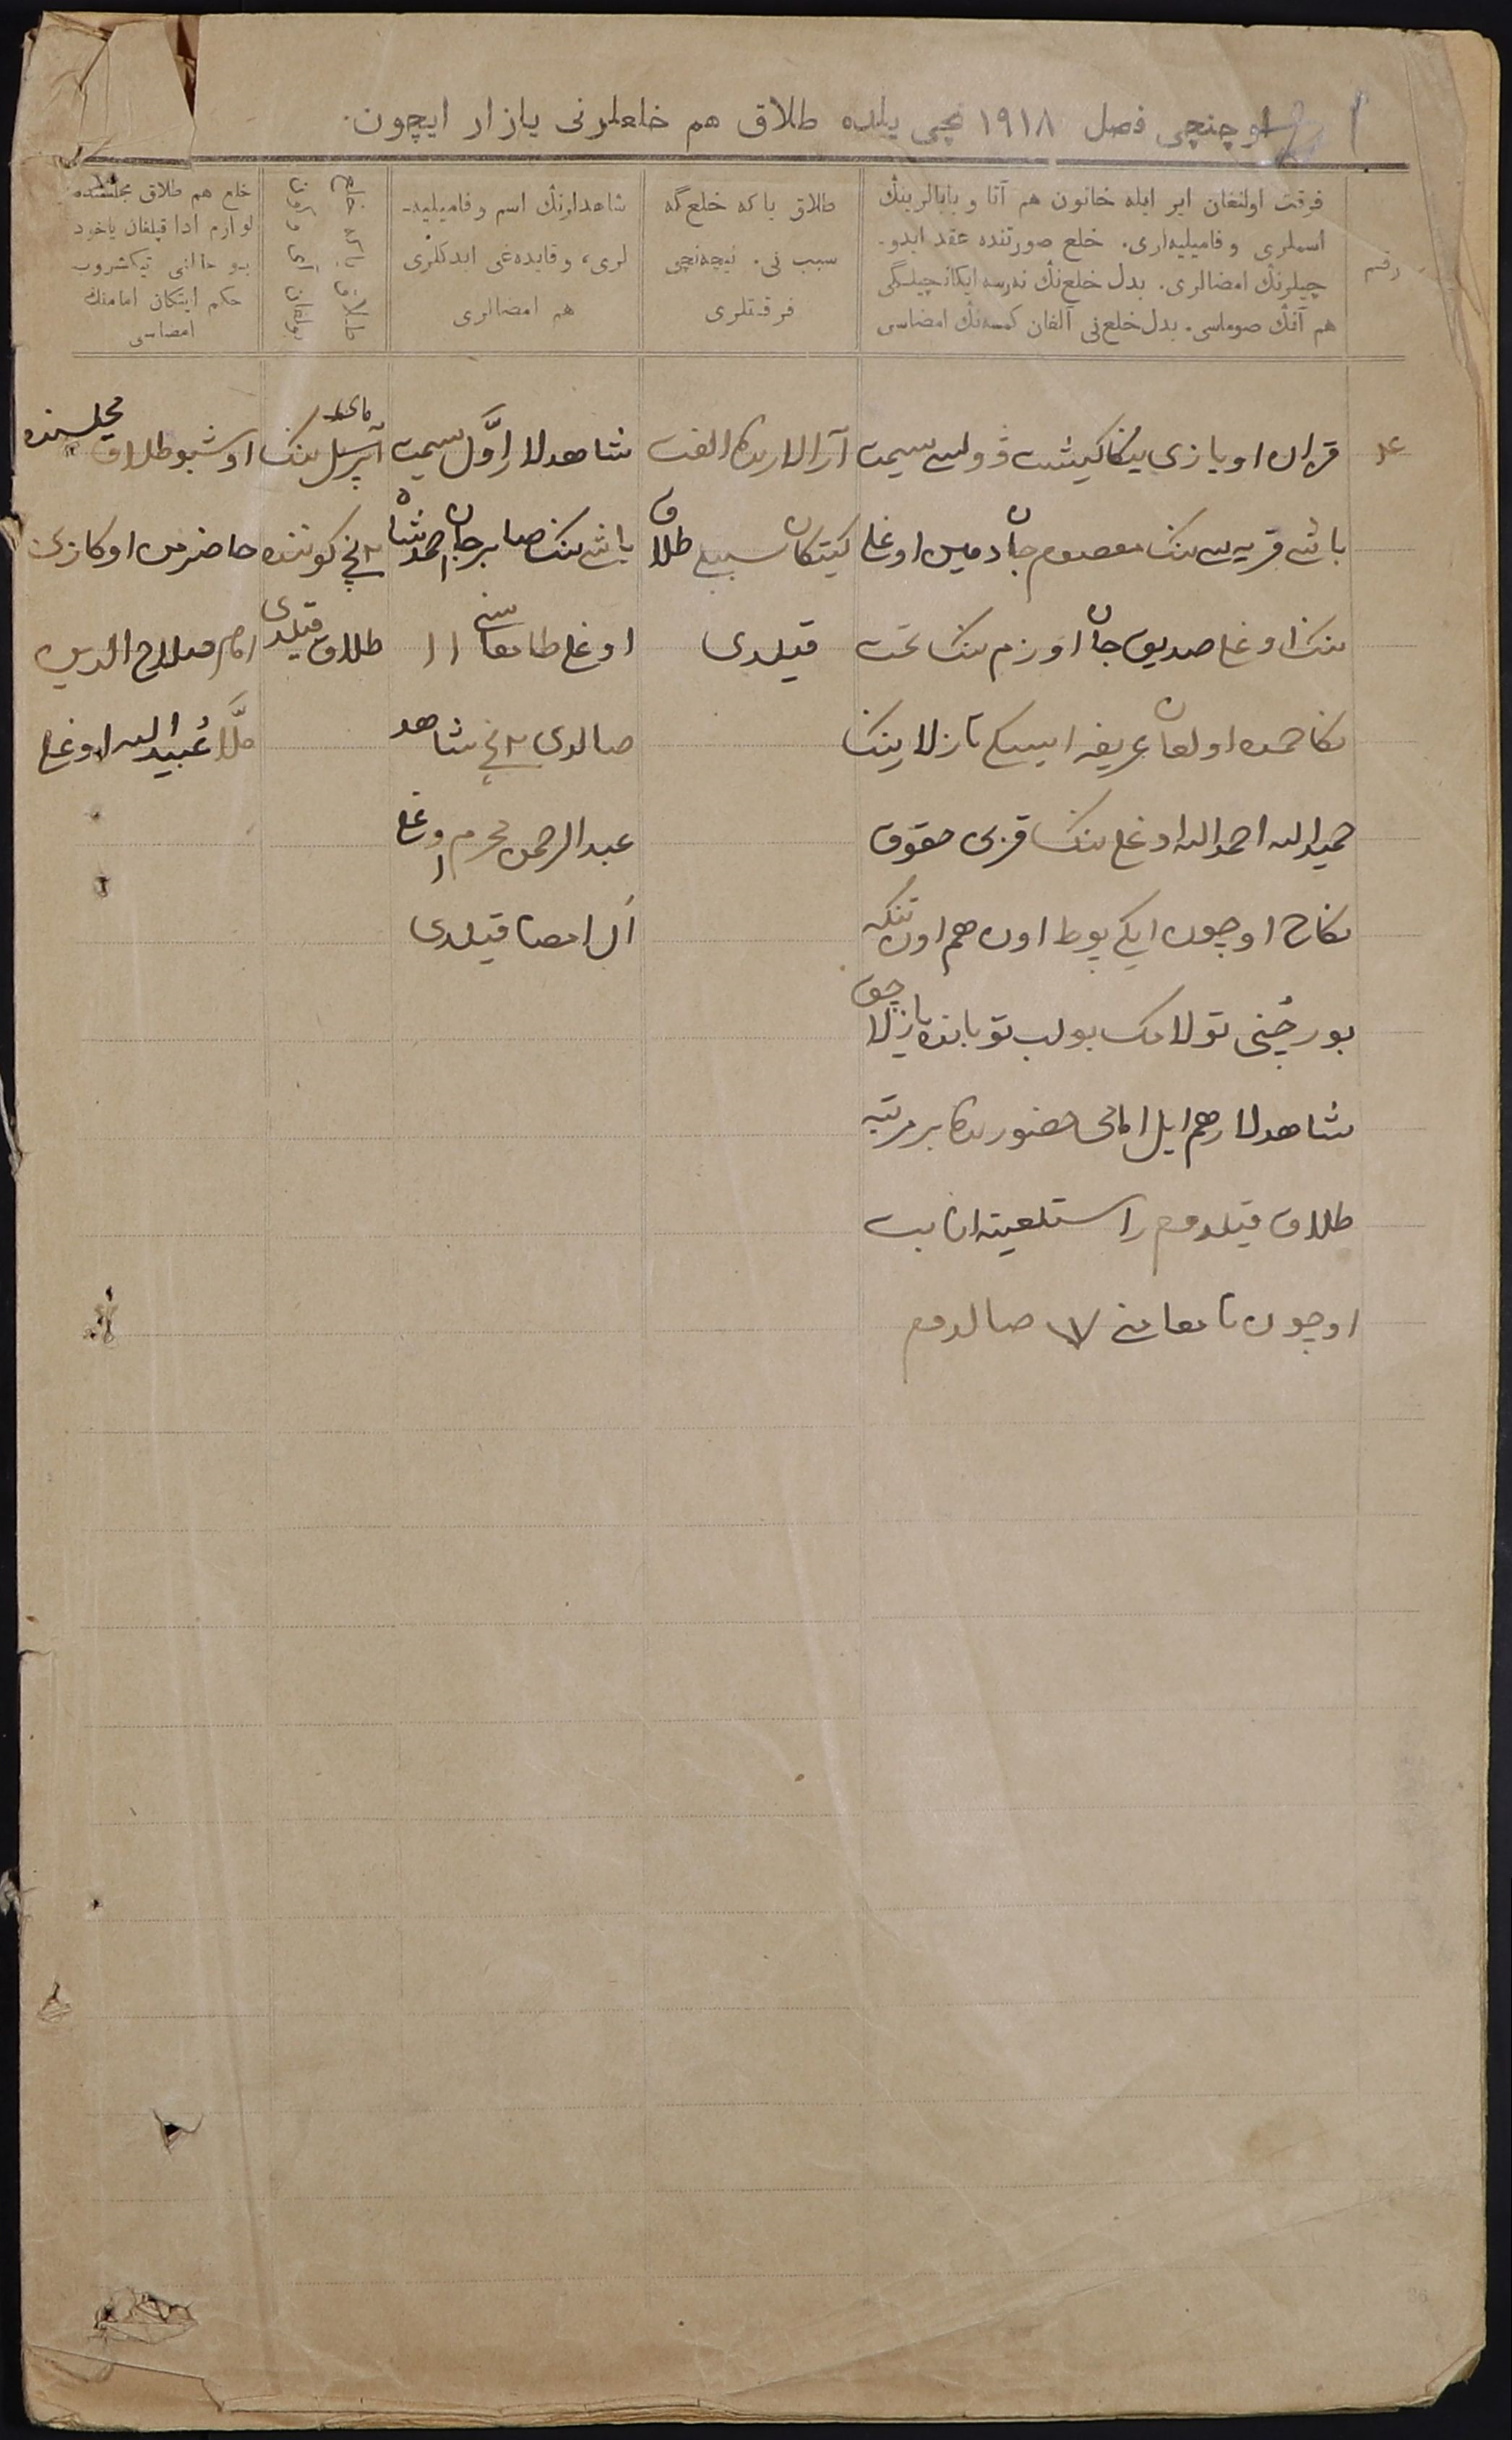 اوچنچی فصل ۱۹۱۸ نچی یلده طلاق هم خلعلرنی یازار ایچون.
رقم
فرقت اولنغان ایر ایله خاتون هم آتا و بابالرینڭ
اسملری و فامیلیه‌لری. خلع صورتنده عقد ایدو-
چیلرنڭ امضالری. بدل خلع‌نڭ نه‌رسه ایکانچیلگی
هم آنڭ صوماسی. بدل خلع‌نی آلغان کمسه‌نڭ امضاسی
طلاق یا که خلع گه
سبب نی. نیچه‌نچی
فرقتلری
شاهدلرنڭ اسم و فامیلیه-
لری، و قایده‌غی ایدکلری
هم امضالری
طلاق یا که خلع
بولغان آی و کون
خلع هم طلاق مجلسنده
لوازم ادا قیلغان یاخود
بو حالنی تیکشروب
حکم ایتکان امامنڭ
امضاسی
قزان اویازی ... ولسی سیمت
باشی قریه سی ننک معصوم جان ... اوغلی
ننک اوغلی صدیق جان اوزم ننک تحت
نکاحمده اولغان عریفه ایسملی ...
حمیدالله احمدالله اوغلی ننک قزی حقوق
نکاح اوچون ایکی پوط اون هم اون تنکه
بورچنی تولامک بولب توبانده یازلاچق
شاهدلار هم ایل امامی حضورنده بر مرتبه
طلاق قیلدم راستلغینه اثابت
اوچون تامغامنی ۷ صالدم
آرالارندن الفت
کیتکان سببلی طلاق
قیلدی
شاهدلار اوّل سیمت
باشی ننک صابرجان احمدشاه
اوغلی طامغاسنی ۱۱
صالدی ۲نچی شاهد
عبدالرحمن محرم اوغلی
ال امضا قیلدی
آپریل ننک
۲نچی کوننده
طلاق قیلدی
اوشبو طلاق مجلسنده
حاضر من اوکازنی
امام صلاح الدین
ملّا عُبیدالله اوغلی